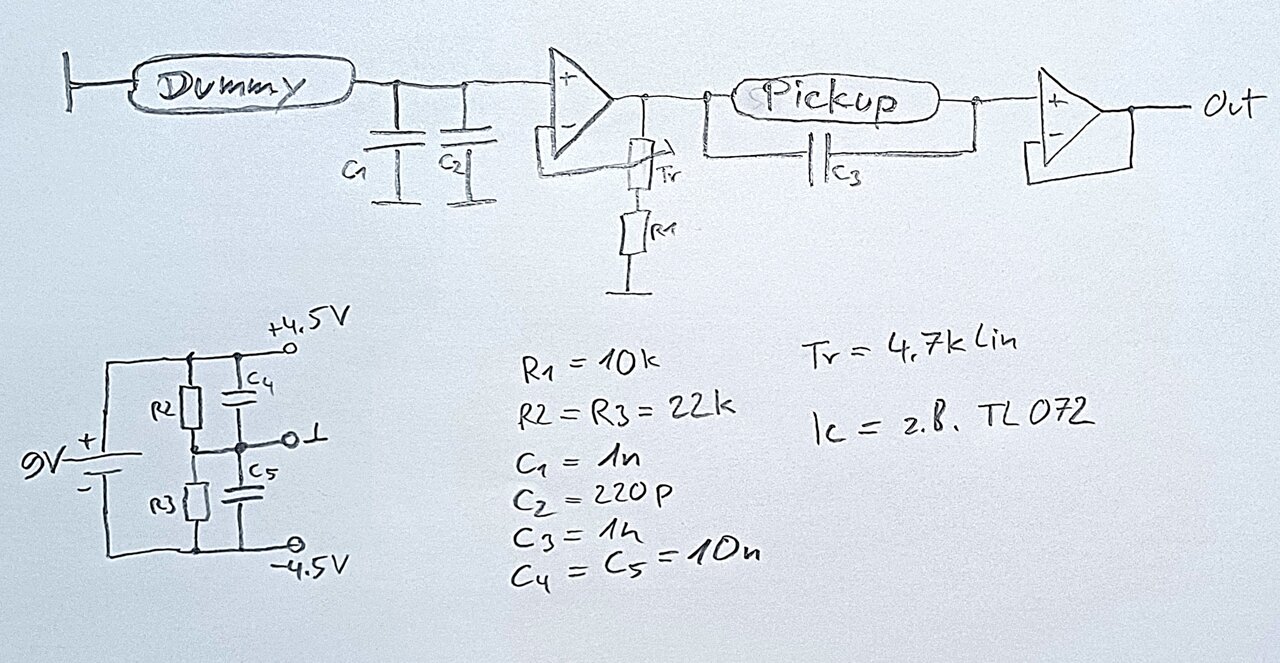 Dummy
+
-
Pickup
+
-
Out
C1
C2
Tr
C3
R1
+4.5V
C4
R2
9V
+
-
⊥
C5
R3
-4.5V
R1 = 10k
R2 = R3 = 22k
C1 = 1n
C2 = 220p
C3 = 1n
C4 = C5 = 10n
Tr = 4.7k Lin
Ic = z.B. TL072